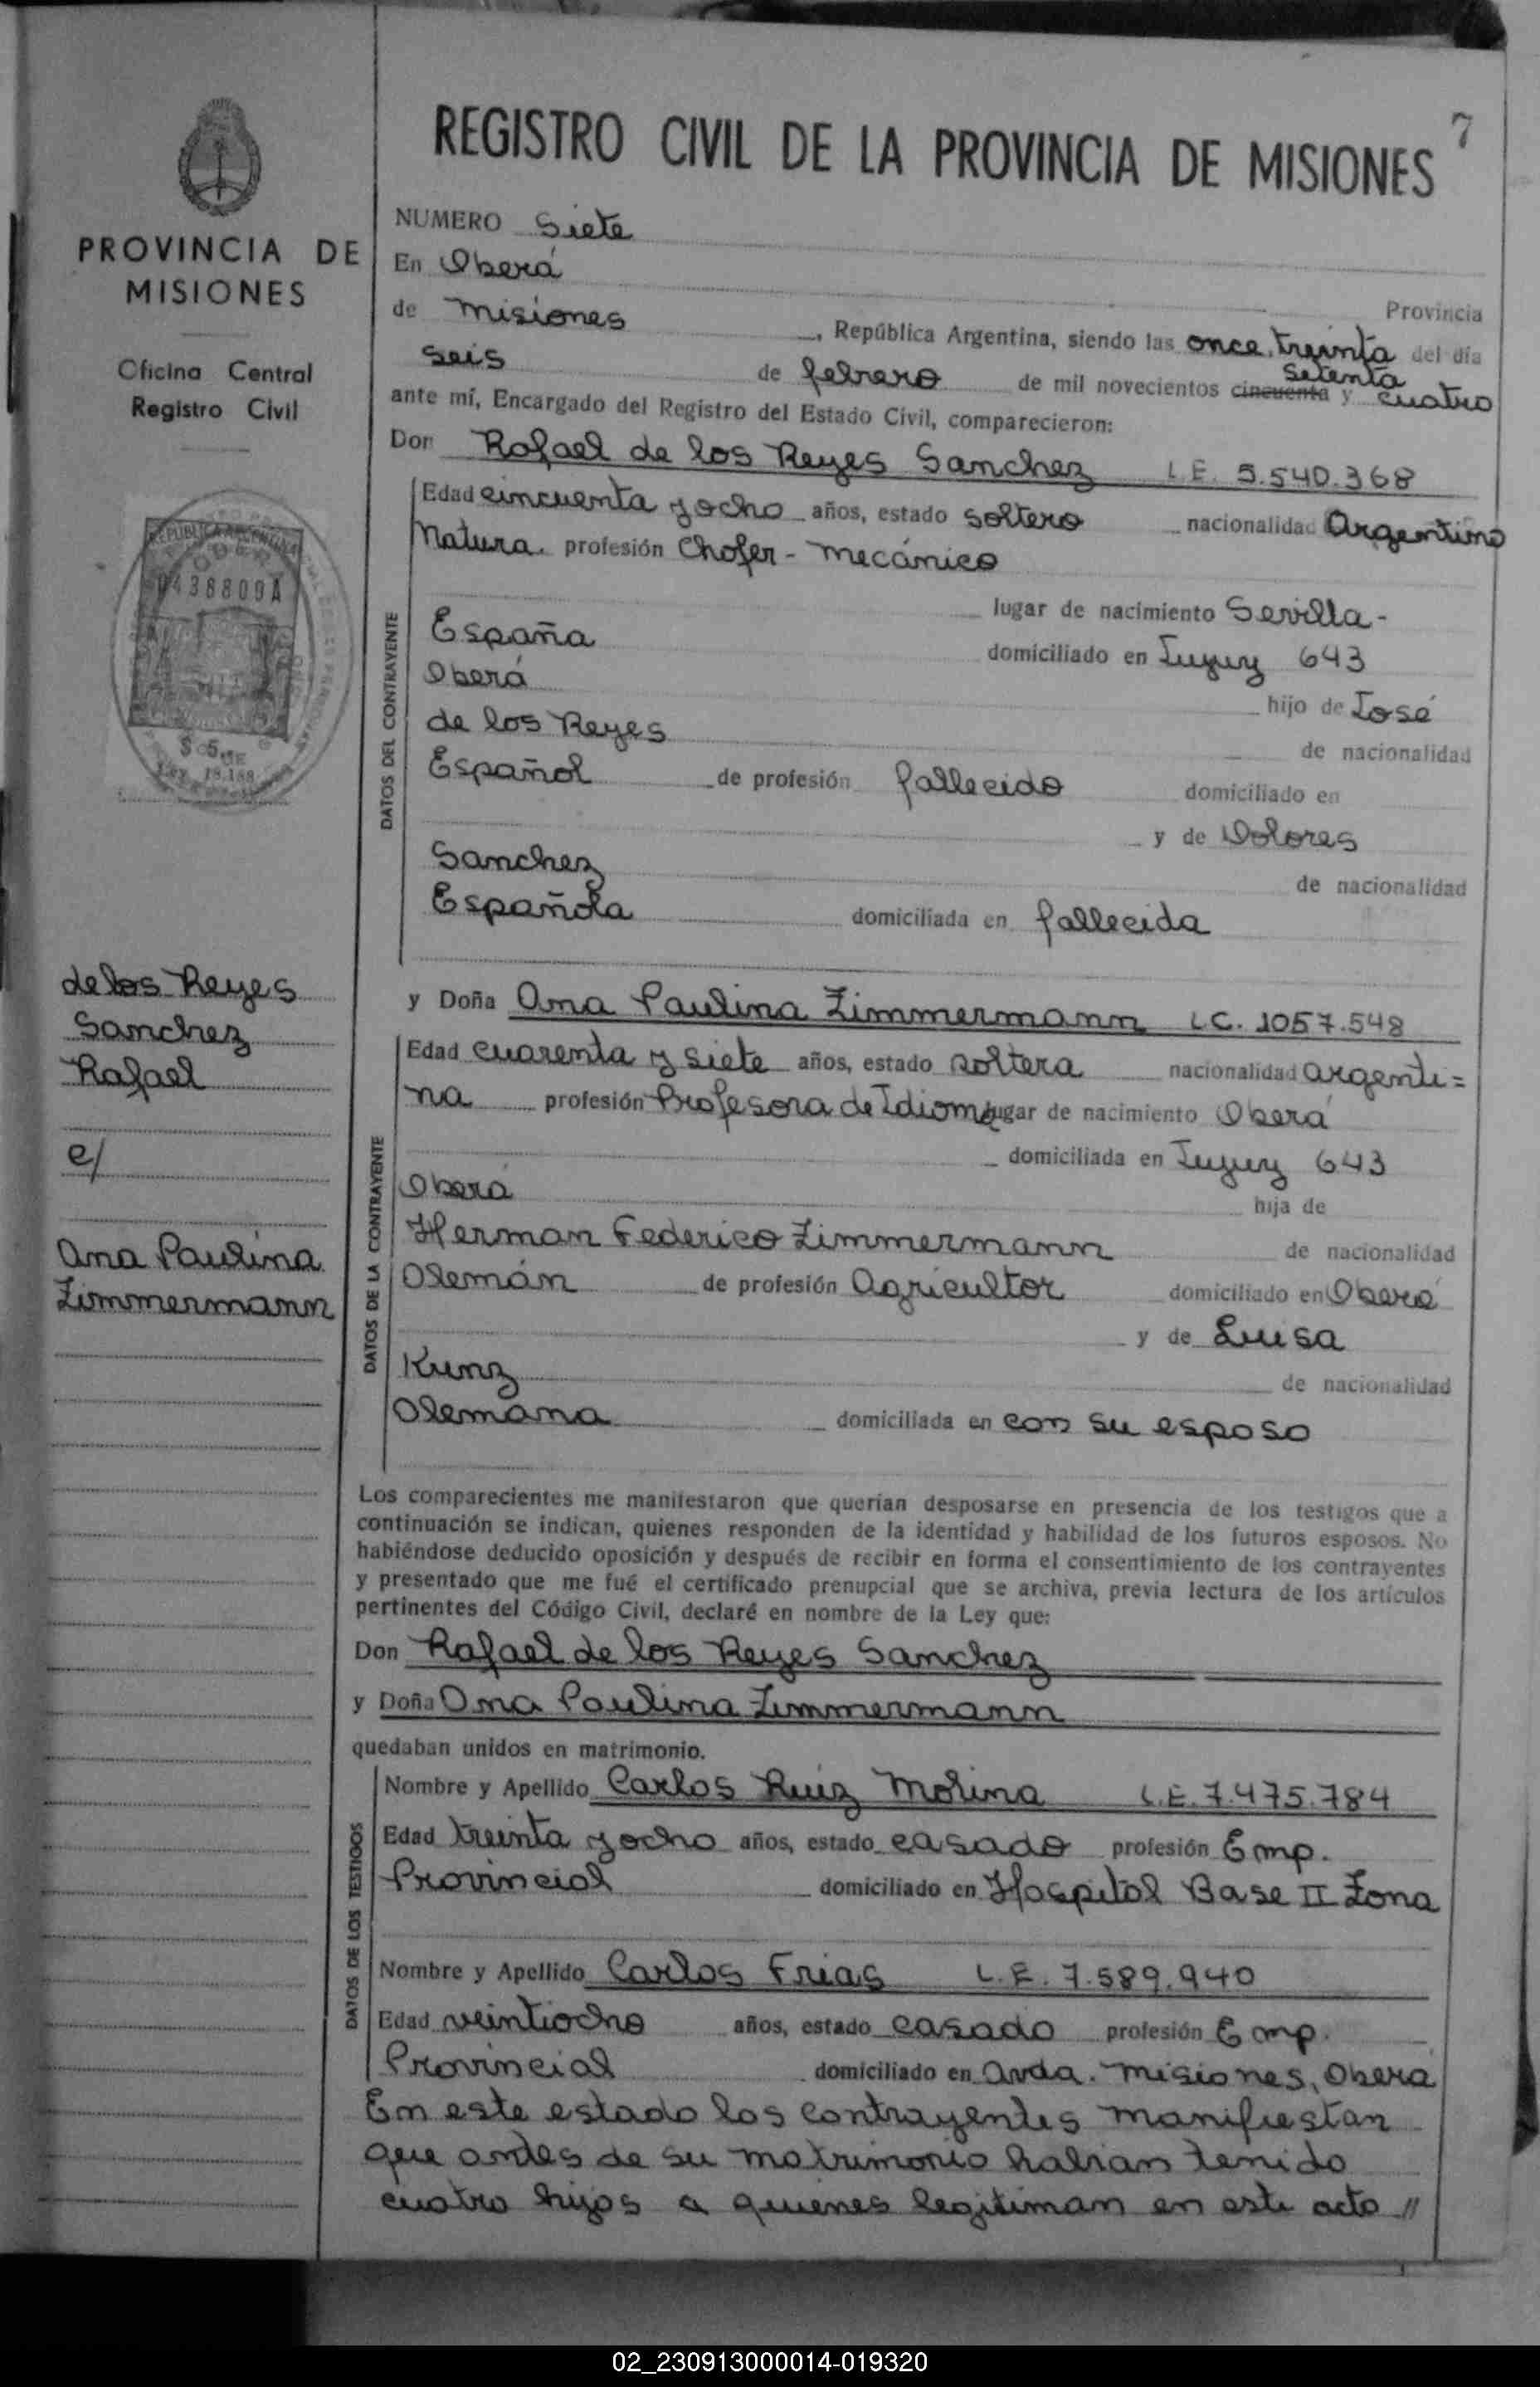 7
REGISTRO CIVIL DE LA PROVINCIA DE MISIONES
PROVINCIA DE
MISIONES
Oficina Central
Registro Civil
REPUBLICA ARGENTINA
438809A
$ 5
LEY 18.188
de los Reyes
Sanchez
Rafael
c/
Ana Paulina
Zimmermann
NUMERO Siete
En Oberá
Provincia
de Misiones, República Argentina, siendo las once, treinta del día
seis de febrero de mil novecientos cincuenta setenta y cuatro
ante mí, Encargado del Registro del Estado Civil, comparecieron:
Don Rafael de los Reyes Sanchez L.E. 5.540.368
DATOS DEL CONTRAYENTE
Edad cincuenta y ocho años, estado soltero nacionalidad Argentino
Natura. profesión Chofer - Mecánico
lugar de nacimiento Sevilla -
España domiciliado en Jujuy 643
Oberá hijo de José
de los Reyes de nacionalidad
Español de profesión fallecido domiciliado en
y de Dolores
Sanchez de nacionalidad
Española domiciliada en fallecida
y Doña Ana Paulina Zimmermann L.C. 1057.548
DATOS DE LA CONTRAYENTE
Edad cuarenta y siete años, estado soltera nacionalidad argenti=
na profesión Profesora de Idioma lugar de nacimiento Oberá
domiciliada en Jujuy 643
Oberá hija de
Herman Federico Zimmermann de nacionalidad
Alemán de profesión Agricultor domiciliado en Oberá
y de Luisa
Kunz de nacionalidad
Alemana domiciliada en con su esposo
Los comparecientes me manifestaron que querían desposarse en presencia de los testigos que a
continuación se indican, quienes responden de la identidad y habilidad de los futuros esposos. No
habiéndose deducido oposición y después de recibir en forma el consentimiento de los contrayentes
y presentado que me fué el certificado prenupcial que se archiva, previa lectura de los artículos
pertinentes del Código Civil, declaré en nombre de la Ley que:
Don Rafael de los Reyes Sanchez
y Doña Ana Paulina Zimmermann
quedaban unidos en matrimonio.
DATOS DE LOS TESTIGOS
Nombre y Apellido Carlos Ruiz Molina L.E. 7.475.784
Edad treinta y ocho años, estado casado profesión Emp.
Provincial domiciliado en Hospital Base II Zona
Nombre y Apellido Carlos Frias L.E. 7.589.940
Edad veintiocho años, estado casado profesión Emp.
Provincial domiciliado en Avda. Misiones, Oberá
En este estado los contrayentes manifiestan
que antes de su matrimonio habian tenido
cuatro hijos a quienes legitiman en este acto //
02_230913000014-019320